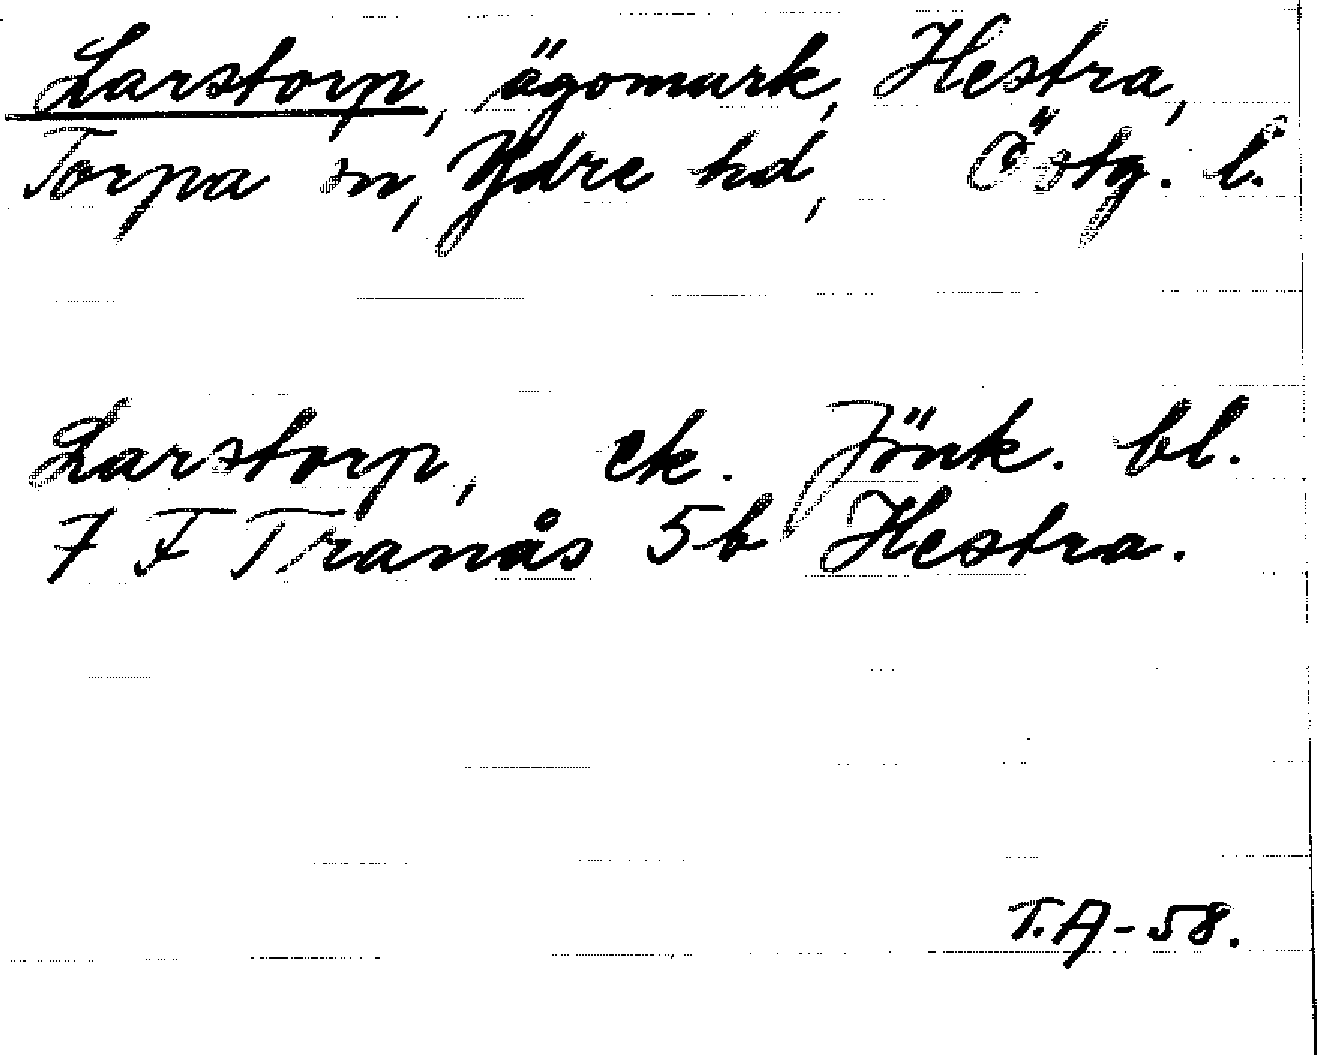 Larstorp, ägomark, Hestra,
Torpa sn, Ydre hd, Östg. l.
Larstorp, ek. Jönk. bl.
7 F Tranås 5b Hestra.
T.A-58.